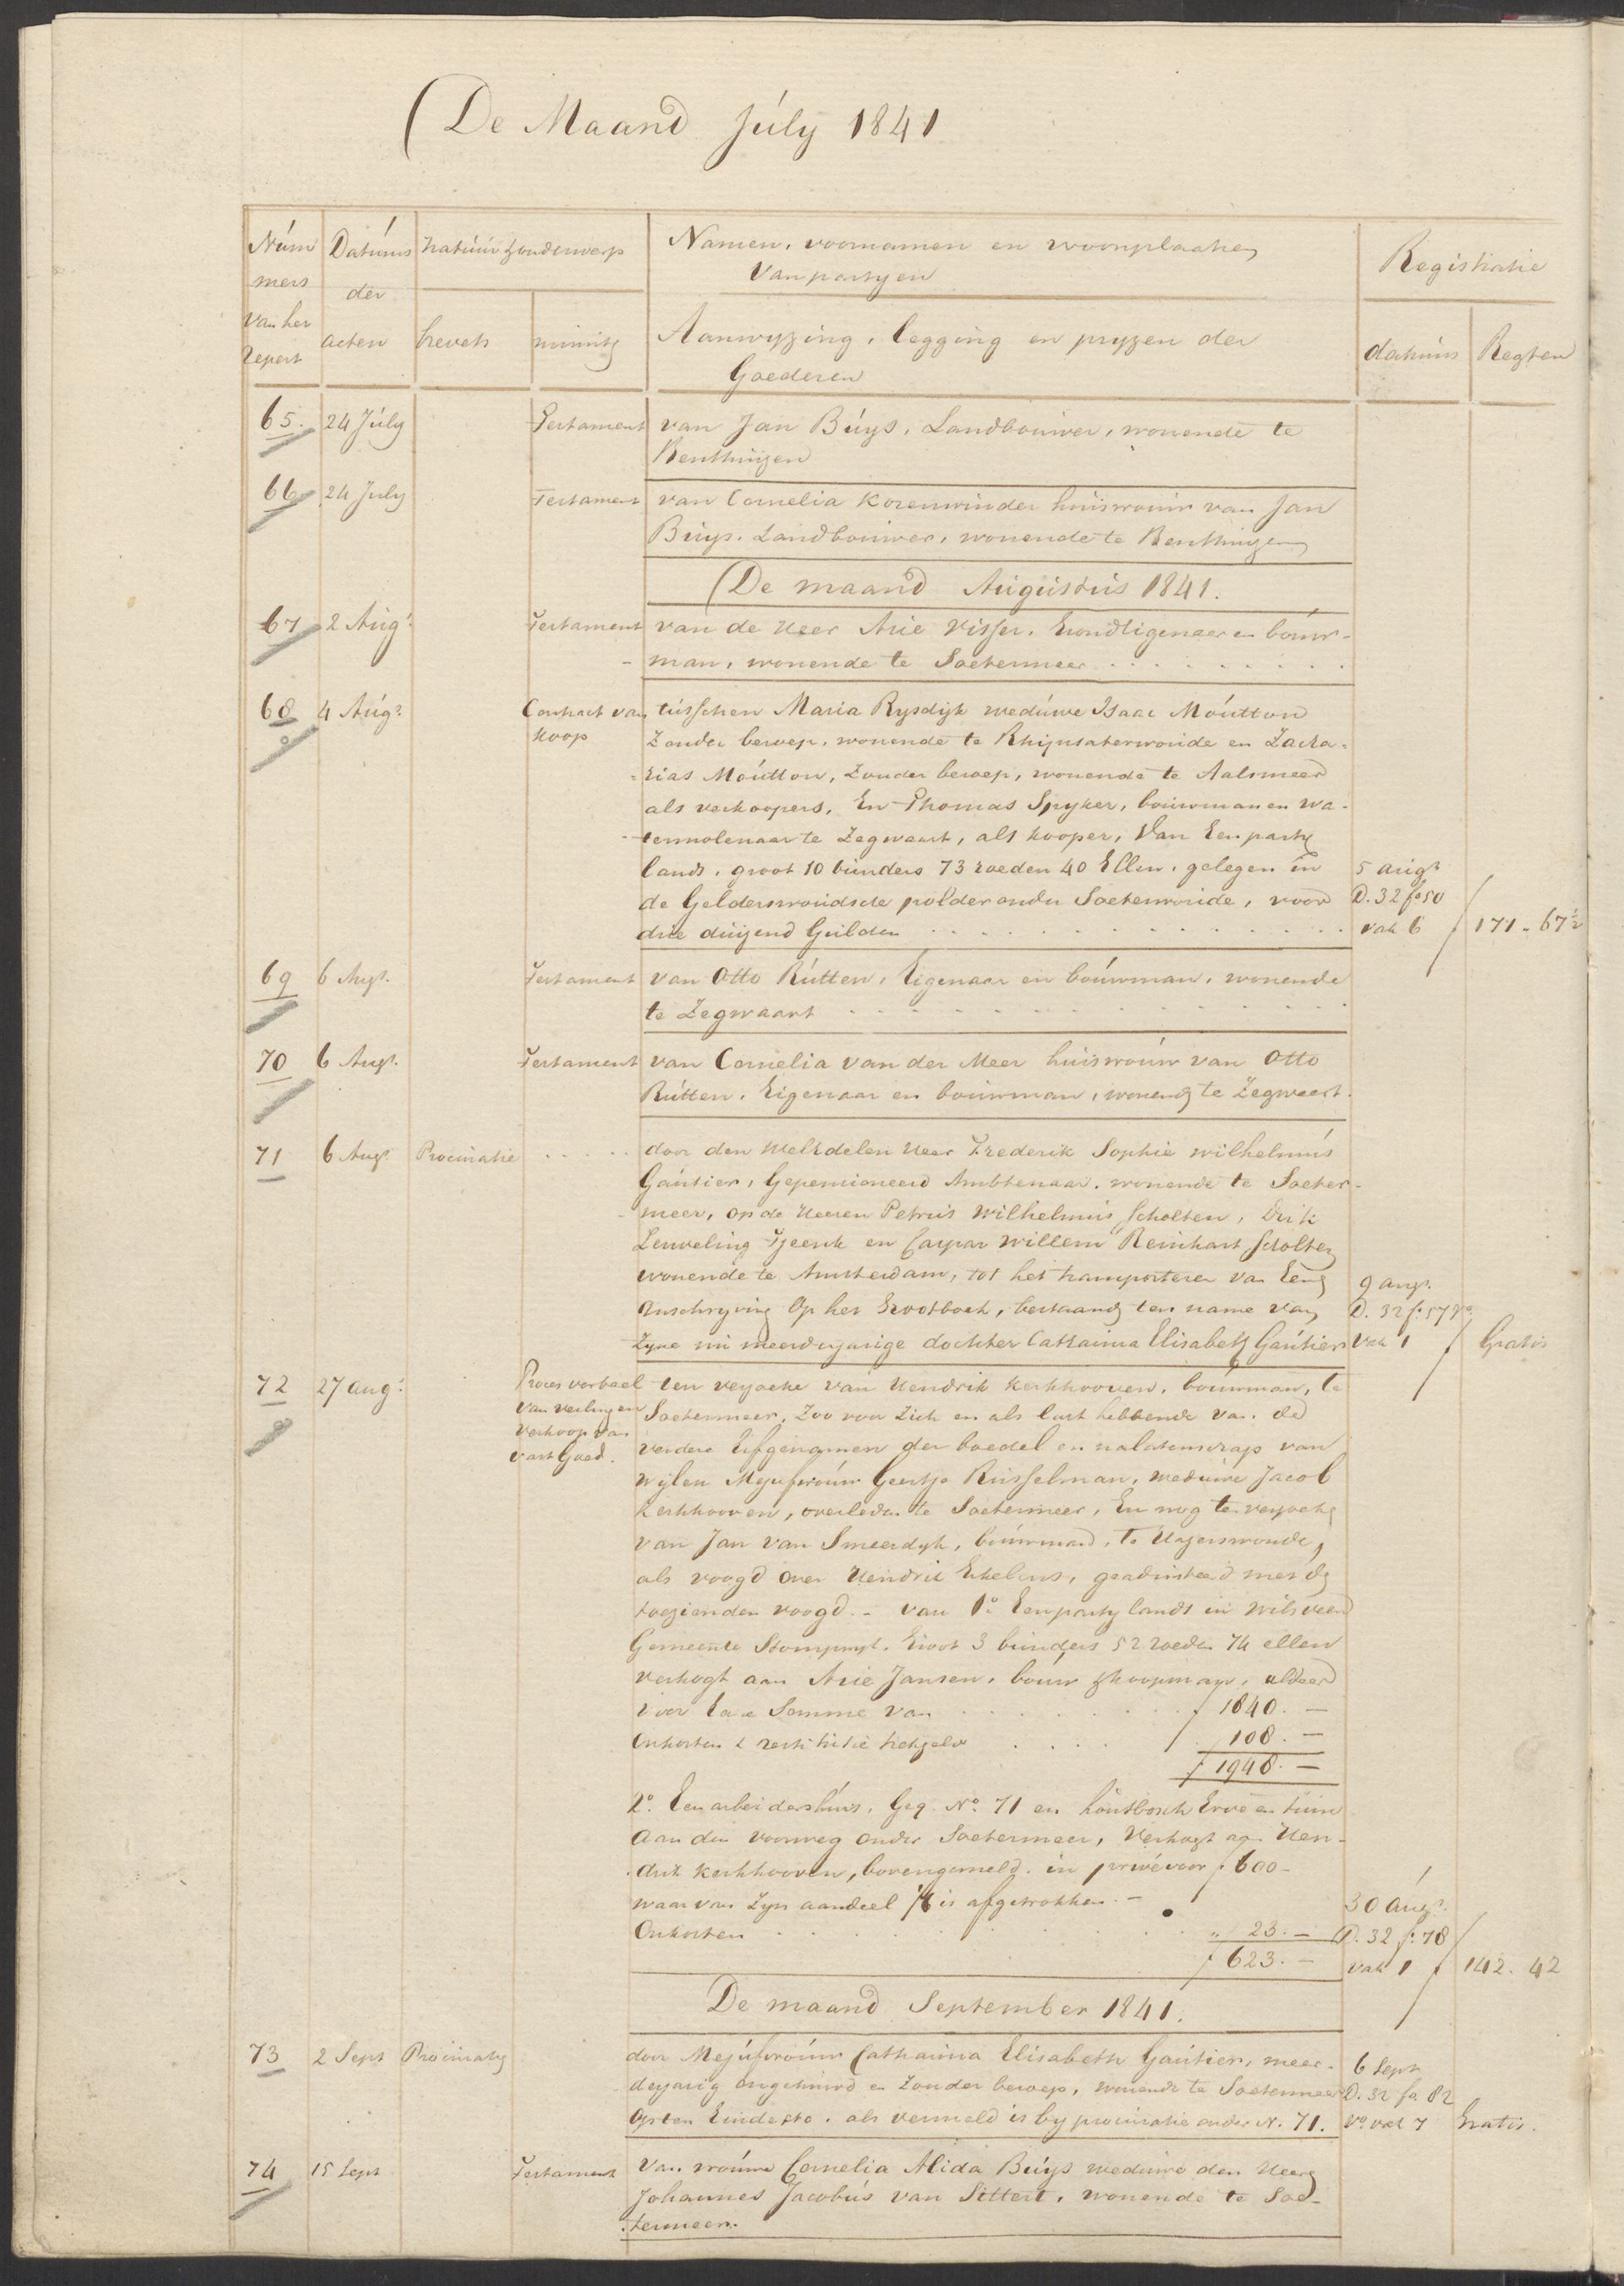 De Maand July 1841
Num Datums natuur & onderwerp Namen, voornamen en woonplaatsen Registratie
mers der van partyen
van het acten brevets minuts Aanwyzing, legging en pryzen der datums Regten
Repert Goederen
65. 24 July Testament van Jan Buys, Landbouwer, wonende te
Benthuizen
66 24 July Testament van Cornelia Korenwinder huisvrouw van Jan
Buys, Landbouwer, wonende te Benthuizen
De maand Augustus 1841.
67 2 Augt Testament van de Heer Arie Visser, Grondeigenaar en bouw-
man, wonende te Soetermeer
68 4 Augt Contract van tusschen Maria Rysdyk weduwe Isaac Moutton
Koop zonder beroep, wonende te Rhijnsaterwoude en Zacha-
rias Moutton, zonder beroep, wonende te Aalsmeer
als verkoopers, En Thomas Spyker, bouwman en wa-
termolenaar te Zegwaart, als kooper, Van Een party
lands, groot 10 bunders 73 roeden 40 Ellen, gelegen in 5 augt
de Gelderswoudsche polder onder Soeterwoude, voor D. 32 fo 50
drie duizend Gulden vak 6 f 171 . 67½
69 6 Augt. Testament van Otto Rutten, Eigenaar en bouwman, wonende
te Zegwaart
70 6 Augt. Testament van Cornelia van der Meer huisvrouw van Otto
Rutten, Eigenaar en bouwman, wonende te Zegwaart.
71 6 Augt Procuratie door den WelEdelen Heer Frederik Sophie Wilhelmus
Gautier, Gepensioneerd Ambtenaar, wonende te Soeter-
meer, op de Heeren Petrus Wilhelmus Scholten, Dirk
Leuveling Tjeenk en Caspar Willem Reinhart Scholten
wonende te Amsterdam, tot het transporteren van Eene 9 augt.
Inschryving Op het Grootboek, bestaande ten name van D. 32 f. 57 vo
Zyne nu meerderjarige dochter Catharina Elisabeth Gautier Vak 1 f Gratis
72 27 augt Proces verbaal ten verzoeke van Hendrik Kerkhooven, bouwman, te
van veiling en Soetermeer, Zoo voor Zich en als last hebbende van de
verkoop van verdere Erfgenamen der boedel en nalatenschap van
vast Goed. wylen Mejufvrouw Geertje Russelman, weduwe Jacob
Kerkhooven, overleden te Soetermeer, En nog ten verzoeke
van Jan van Smeerdyk, bouwman, te Hazerswoude,
als voogd over Hendrik Ekelens, geadsisteerd met de
toezienden voogd. - van 1o. Een party lands in Wilsveen
Gemeente Stompwyk, Groot 3 bunders 52 roeden 74 ellen
verkogt aan Arie Jansen, bouw & koopman, aldaar
voor Eene Somme van f 1840. —
Onkosten & restitutie trekgeld 108. —
f 1948. —
2o. Een arbeidershuis, Geq. No. 71 en houtbosch Erve en tuin
aan den voorweg onder Soetermeer, Verkogt aan Hen-
drik Kerkhooven, bovengemeld, in privé voor f 600 -
waar van Zyn aandeel is afgetrokken. - 30 augt.
Onkosten " 23. — D. 32 f. 78
f 623. — vak 1 f 142. 42
De maand September 1841.
73 2 Sept Procuratie door Mejufvrouw Catharina Elisabeth Gautier, meer- 6 Sept
derjarig ongehuwd en zonder beroep, wonende te Soetermeer D. 32 fo 82
op ten Einde &to. als vermeld is by procuratie onder N. 71. Vo vak 7 Gratis.
74 15 Sept Testament Van vrouwe Cornelia Alida Buys weduwe den Heere
Johannes Jacobus van Sittert, wonende te Soe-
termeer.